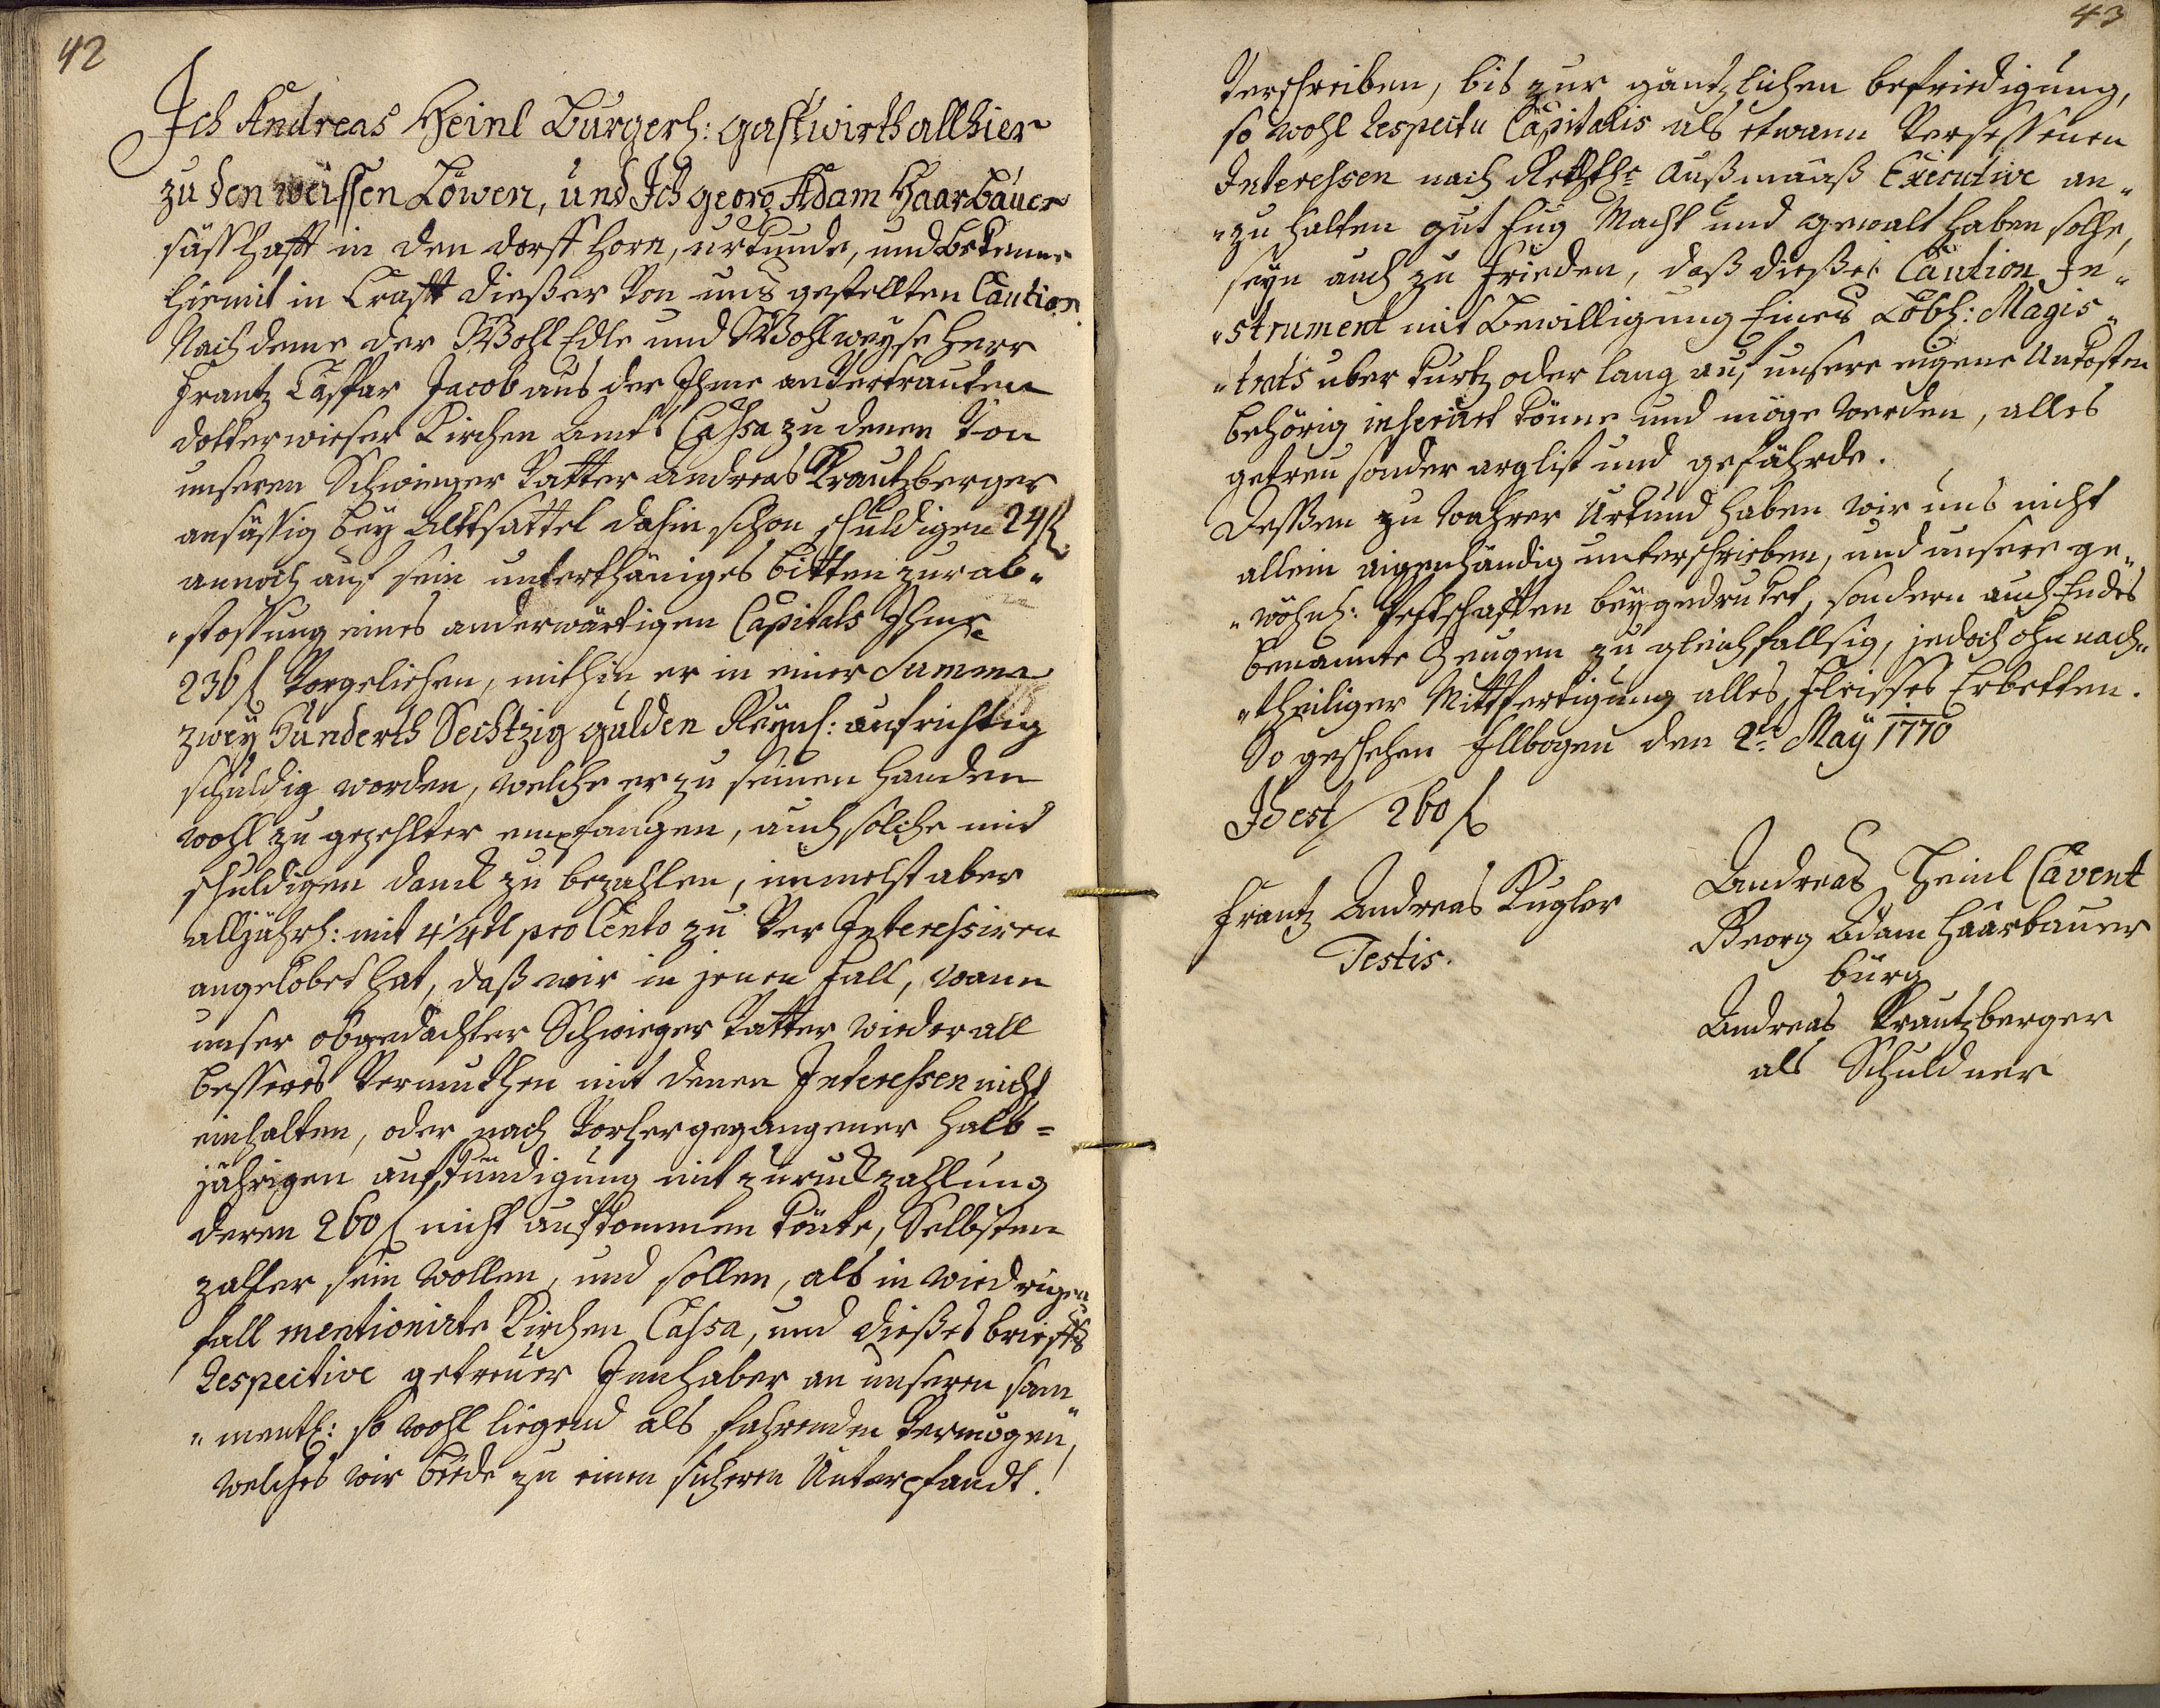 42
Ich Andreas Heinl Burgerl: gastwirth allhier
zu den weissen Löwen, und Ich georg Adam Haarbauer
sässhafft in den dorff Horn, urkunde, und bekenne
hiemit in Crafft dießer von uns gestellten Caution
Nach deme der WohlEdle und Wohlweyse Herr
Frantz Caspar Jacob aus der Ihme anvertrauten
dotterwieser Kirchen Amts Cassa zu denen von
unseren Schwieger Vatter Andreas Krautzberger
ansässig bey Altsattel dahin schon schuldigen 24 f
annoch auf sein unterthäniges bitten zur ab-
stossung eines anderwärtigen Capitals Ihme
236 f vorgeliehen, mithin er in einer Summa
zwey Hunderth Sechtzig gulden Reynl: aufrichtig
schuldig worden, welche er zu seinen handen
wohl zu gezehlter empfangen, auch solche mit
schuldigen danck zu bezahlen, inmelst aber
alljährl: mit 4 1/4tl pro Cento zu ver Interessiren
angelobet hat, daß wir in jenen fall, wann
unser obgedachter Schwieger Vatter wieder all
besseres vermuthen mit denen Interessen nicht
einhalten, oder nach vorhergegangener halb=
jährigen aufkündigung mit zuruckzahlung
deren 260 f nicht aufkommen könte, Selbsten
zahler sein wollen, und sollen, als in wiedrigen
fall mentionirte Kirchen Cassa, und dießes brieffs
Respective getreuer Innhaber an unseren sam„
„mentl: so wohl liegend als fahrenden vermögen,
welches wir beede zu einen sicheren Unterpfandt.
43
verschreiben, bis zur gäntzlichen befriedigung,
so wohl Respectu Capitalis als etwann versessenen
Interessen nach Rechtle außmaaß Executive an„
„zu halten gut fug Macht und gewalt haben solle,
seyn auch zu frieden, daß dießes Caution In„
„strument mit Bewilligung Eines Löbl: Magis„
„trats uber kurtz oder lang auf unsere eigene Unkosten
behörig inserirt könne und möge werden, alles
getreu sonder arglist und gefährde.
Dessen zu wahrer Urkund haben wir uns nicht
allein aigenhändig unterschrieben, und unsere ge„
„wöhnl: Pettschafften beygedruket, sondern auch Endes
benannte Zeugen zu gleichfallsig, jedoch ohn nach„
„theiliger Mittfertigung alles Fleisses Erbetten.
So geschehen Ellbogen den 2te May 1770
Id est / 260 f
Andreas Heinl Cavent
Georg Adam Haarbauer
bürg
Andreas Krautzberger
als Schuldner
Frantz Andreas Kugler
Testis.